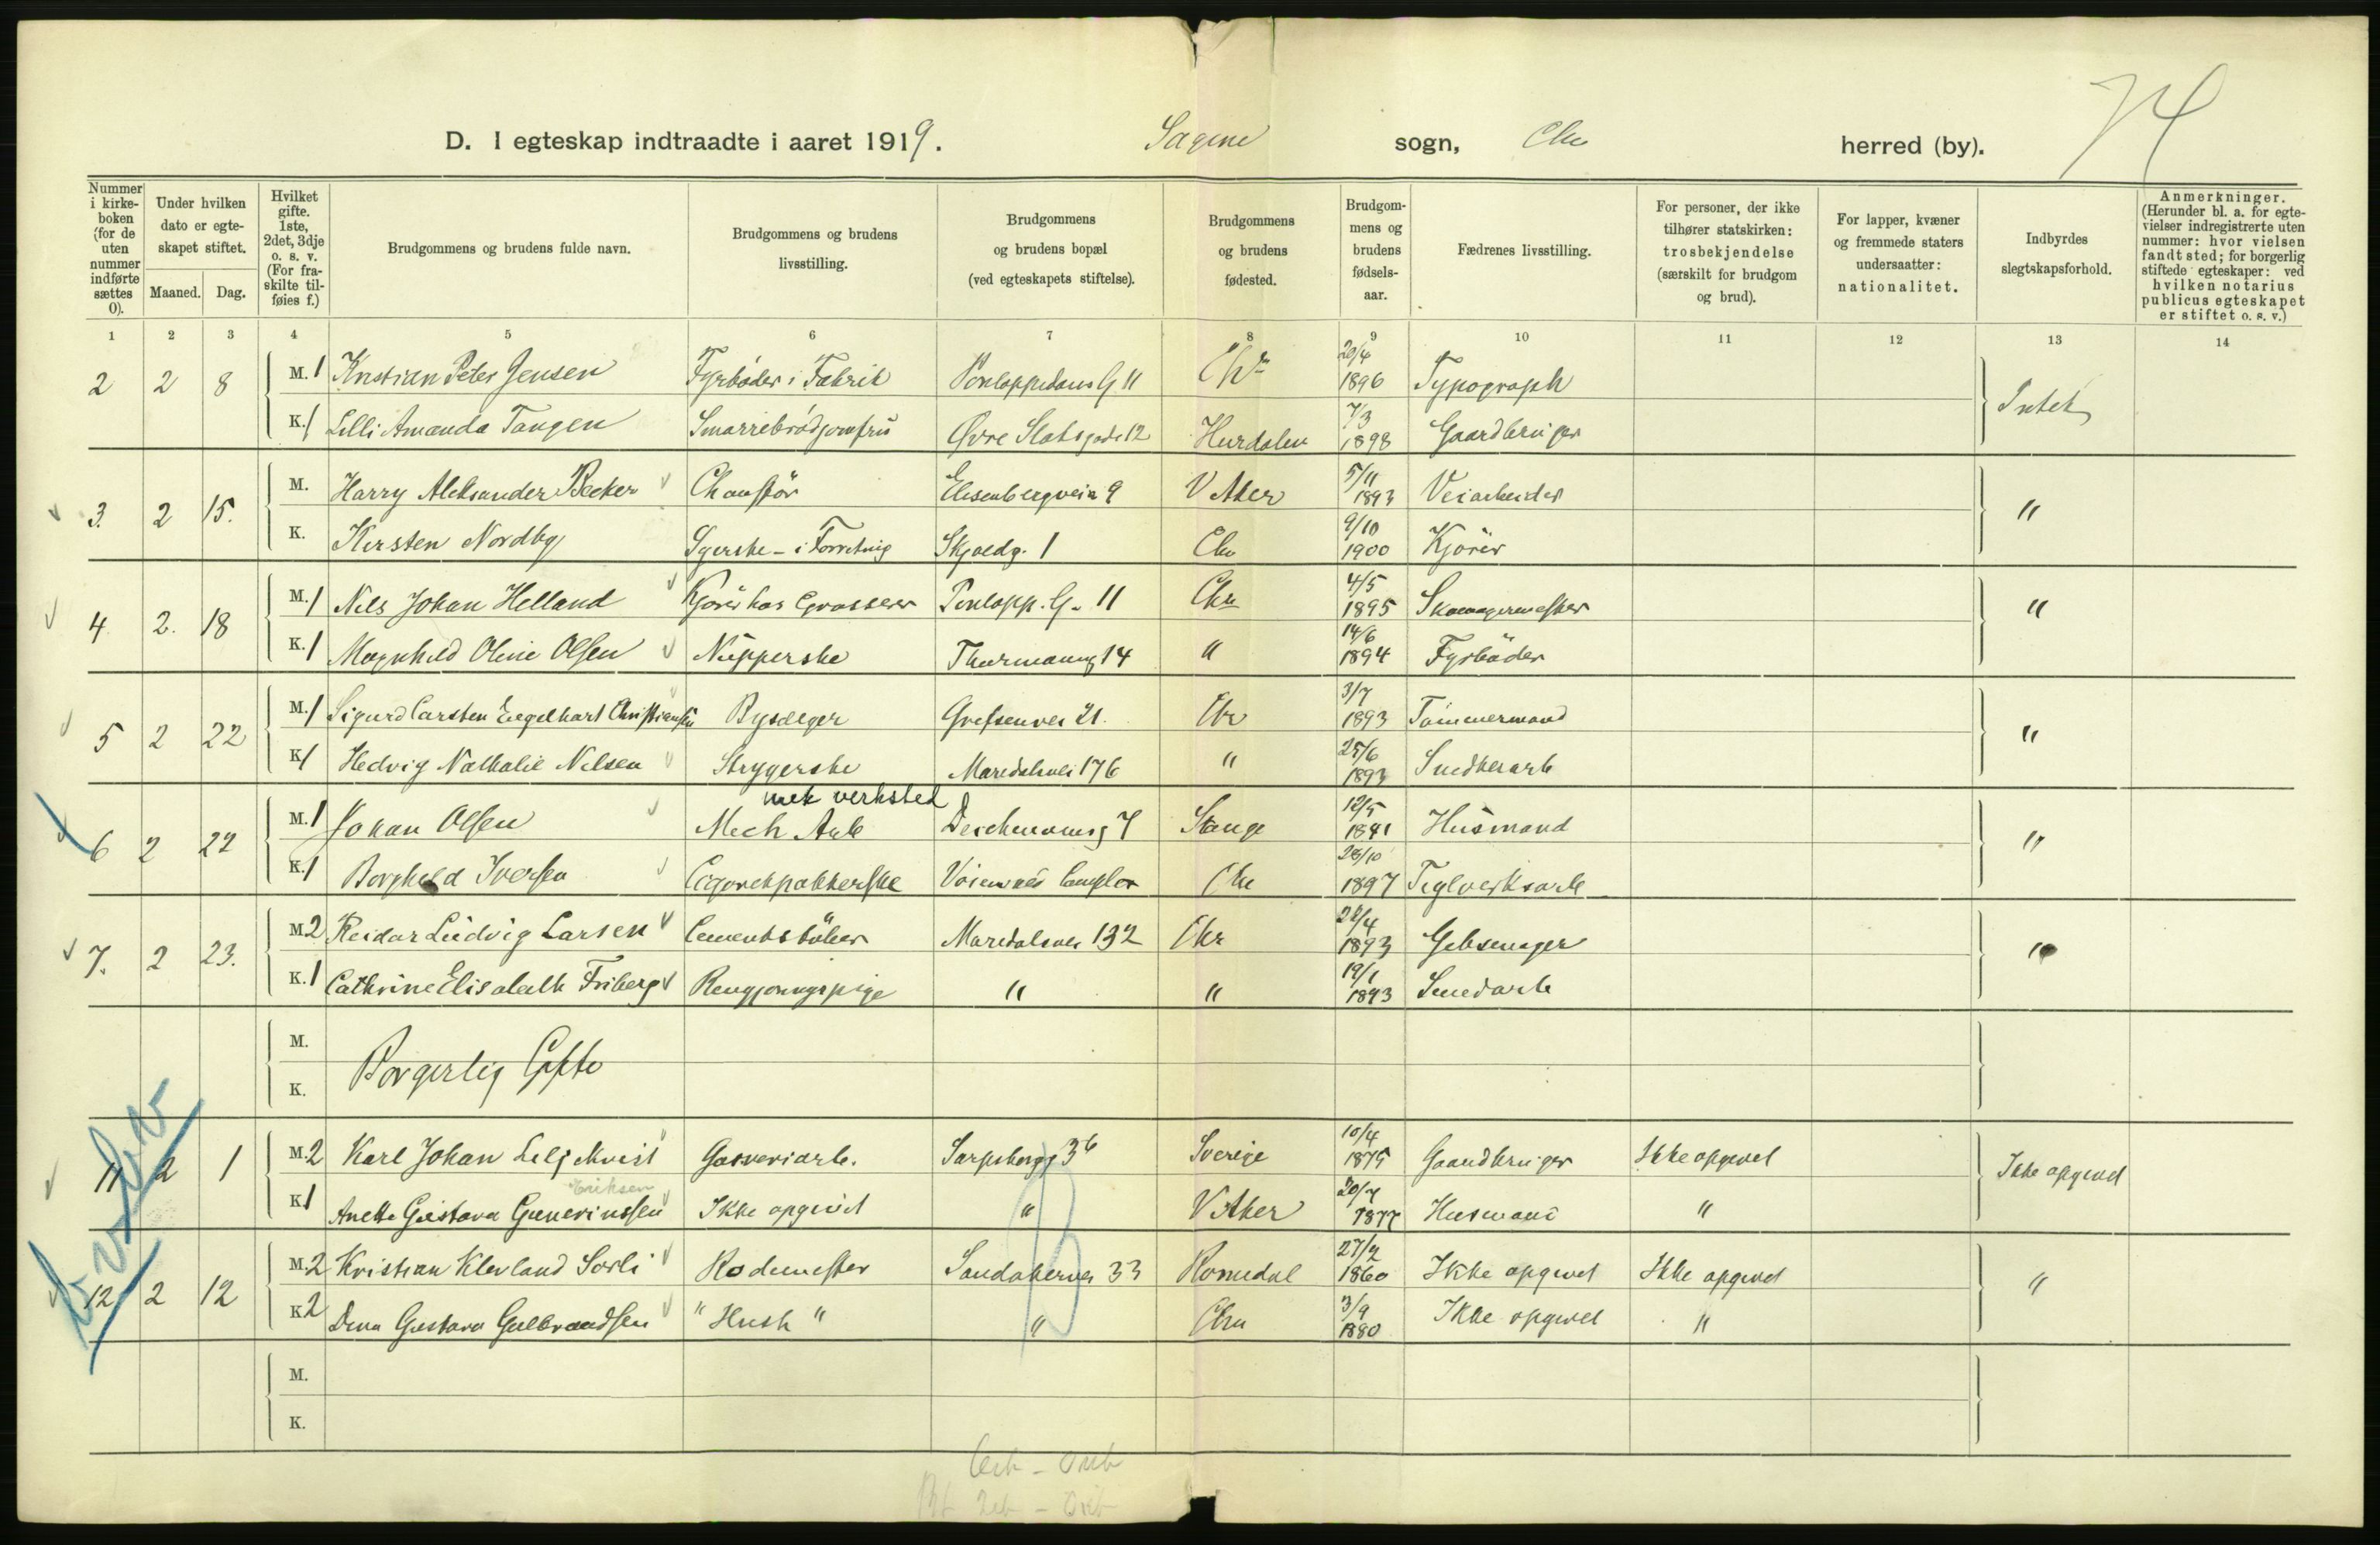 74
D. I egteskap indtraadte i aaret 1919. Sagene sogn, Chr herred (by).
Nummer i kirkeboken (for de uten nummer indførte sættes 0).
Under hvilken dato er egteskapet stiftet.
Maaned. Dag.
Hvilket gifte. 1ste, 2det, 3dje o. s. v. (For fraskilte tilføies f.)
Brudgommens og brudens fulde navn.
Brudgommens og brudens livsstilling.
Brudgommens og brudens bopæl (ved egteskapets stiftelse).
Brudgommens og brudens fødested.
Brudgommens og brudens fødselsaar.
Fædrenes livsstilling.
For personer, der ikke tilhører statskirken: trosbekjendelse (særskilt for brudgom og brud).
For lapper, kvæner og fremmede staters undersaatter: nationalitet.
Indbyrdes slegtskapsforhold.
Anmerkninger. (Herunder bl. a. for egtevielser indregistrerte uten nummer: hvor vielsen fandt sted; for borgerlig stiftede egteskaper: ved hvilken notarius publicus egteskapet er stiftet o. s. v.)
1 2 3 4 5 6 7 8 9 10 11 12 13 14
2 2 8 M. 1 Kristian Peter Jensen Fyrbøder i Fabrik G 11 Chr 20/4 1896 Typograph Intet
K. 1 Lilli Amanda Tangen Smørrebrødjomfru Øvre Slotsgade 12 Hurdalen 7/3 1898 Gaardbruger
3. 2 15. M. Harry Aleksander Becker Chauffør Elisenbergvein 9 V Aker 5/11 1893 Veiarbeider "
K. Kirsten Nordby Syerske - i Forretnig Skjoldg. 1 Chr 9/10 1900 Kjører
4 2. 18 M. 1 Nils Johan Helland Kjører hos Grosserer G. 11 Chr 4/5 1895 Skomagermester "
K. 1 Magnhild Oline Olsen Nupperske Thurmannsg 14 " 14/6 1894 Fyrbøder
5 2 22 M. 1 Sigurd Carsten Engelhart Christiansen Bysælger Grefsenvei 21. Chr 3/7 1893 Tømmermand "
K 1 Hedvig Nathalie Nilsen Strygerske Maridalsvei 176 " 25/6 1893 Snedkerarb
mek verksted
6 2 22 M. 1 Johan Olsen Mech Arb Deichmansg 7 Stange 12/5 1891 Husmand "
K. 1 Borghild Iversen Cigaretpakkerske Chr 28/10 1897 Teglverksarb
7. 2 23. M 2 Reidar Ludvig Larsen Cementstøber Maridalsvei 132 Chr 28/4 1893 Gibsmager "
K. 1 Cathrine Elisabeth Friberg Rengjøringspige " " 19/1 1893 Smedarb
M.
Borgerlig Gifte
K.
11 2 1 M. 2 Karl Johan Liljekvist Gasverkarb. Sarpsborgg 3b Sverige 10/4 1875 Gaardbruger Ikke opgivet Ikke opgivet
Eriksen
K 1 Anette Gustava Gunerinssen Ikke opgivet " V Aker 20/7 1877 Husmand "
12 2 12 M. 2 Kristian Klevland Sørli Rodemester Sandakervei 33 Romedal 27/2 1860 Ikke opgivet Ikke opgivet "
K 2 Dina Gustava Gulbrandsen " Hush " " Chra 3/9 1880 Ikke opgivet "
M.
K.